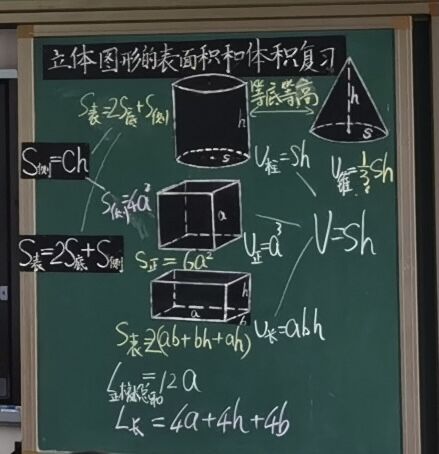 立体图形的表面积和体积复习
S表=2S底+S侧
等底等高
h
h
s
s
S侧=Ch
V柱=Sh
V锥=1/3Sh
S侧=4a²
a
V=Sh
S表=2S底+S侧
S正=6a²
V正=a³
h
a
b
S表=2(ab+bh+ah)
V长=abh
L正棱总和=12a
L长=4a+4h+4b